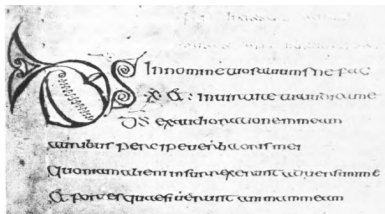 DS In nomine tuo saluum me fac
& in uirtute tua iudica me
DS exaudi orationem meam
auribus percipe uerba oris mei
quoniam alieni insurrexerunt aduersum me
& fortes quaesierunt animam meam